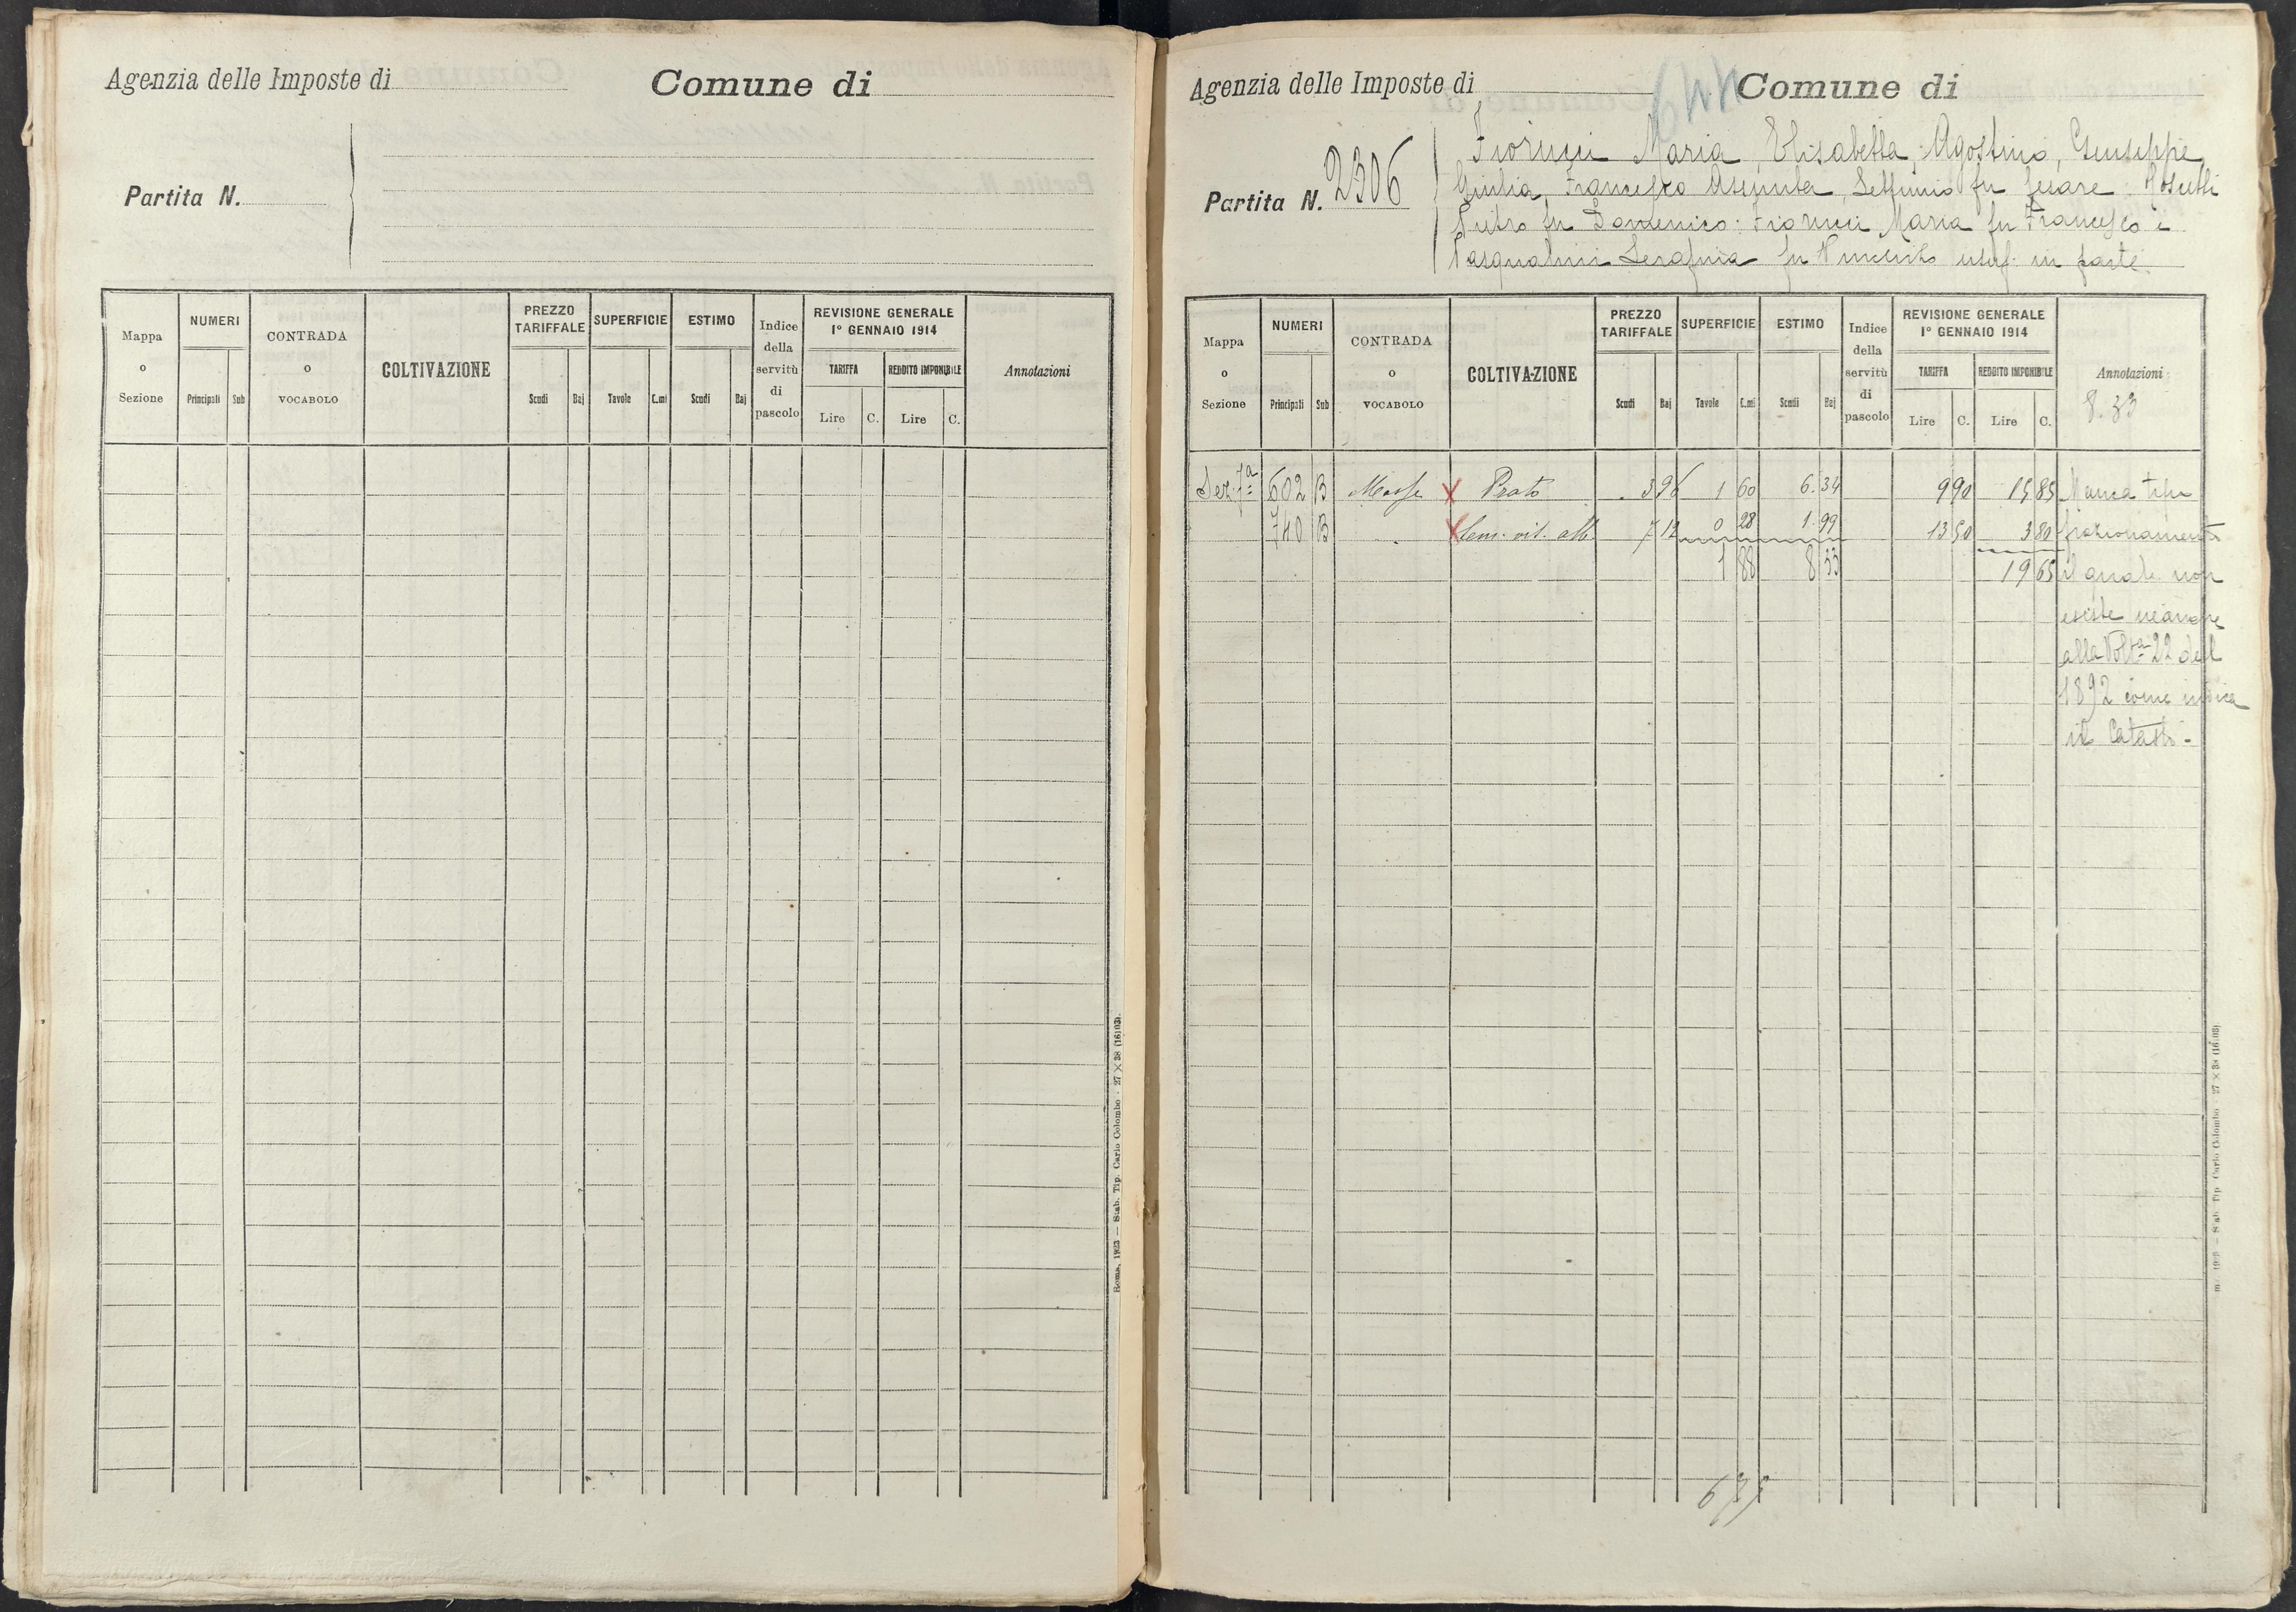 Agenzia delle Imposte di
Comune di
Partita N.
Mappa o Sezione
NUMERI
Principali Sub
CONTRADA o VOCABOLO
COLTIVAZIONE
PREZZO TARIFFALE
Scudi Baj
SUPERFICIE
Tavole C.mi
ESTIMO
Scudi Baj
Indice della servitù di pascolo
REVISIONE GENERALE 1° GENNAIO 1914
TARIFFA
Lire C.
REDDITO IMPONIBILE
Lire C.
Annotazioni
Roma, 1923 — Stab. Tip. Carlo Colombo - 27 × 38 (16103).
Agenzia delle Imposte di
644
Comune di
Partita N. 2306
Fiorucci Maria, Elisabetta, Agostino, Giuseppe,
Giulia, Francesco Assunta, Settimio fu Cesare:
Pietro fu Domenico: Fiorucci Maria fu Francesco e
Pasqualini Serafina fu Vincenzo usuf. in parte.
Mappa o Sezione
NUMERI
Principali Sub
CONTRADA o VOCABOLO
COLTIVAZIONE
PREZZO TARIFFALE
Scudi Baj
SUPERFICIE
Tavole C.mi
ESTIMO
Scudi Baj
Indice della servitù di pascolo
REVISIONE GENERALE 1° GENNAIO 1914
TARIFFA
Lire C.
REDDITO IMPONIBILE
Lire C.
Annotazioni
8.33
Sez. 7a 602 B X Prato 3 96 1 60 6.34 9 90 15 85 Manca tipo
740 B X Sem. vit. alb. 7 12 0 28 1.99 13 50 3 80 frazionamento
1 88 8 33 19 65 il quale non
esiste neanche
alla Volta 22 del
1892 come indica
il Catasto -
677
Stab. Tip. Carlo Colombo - 27 × 38 (16103).